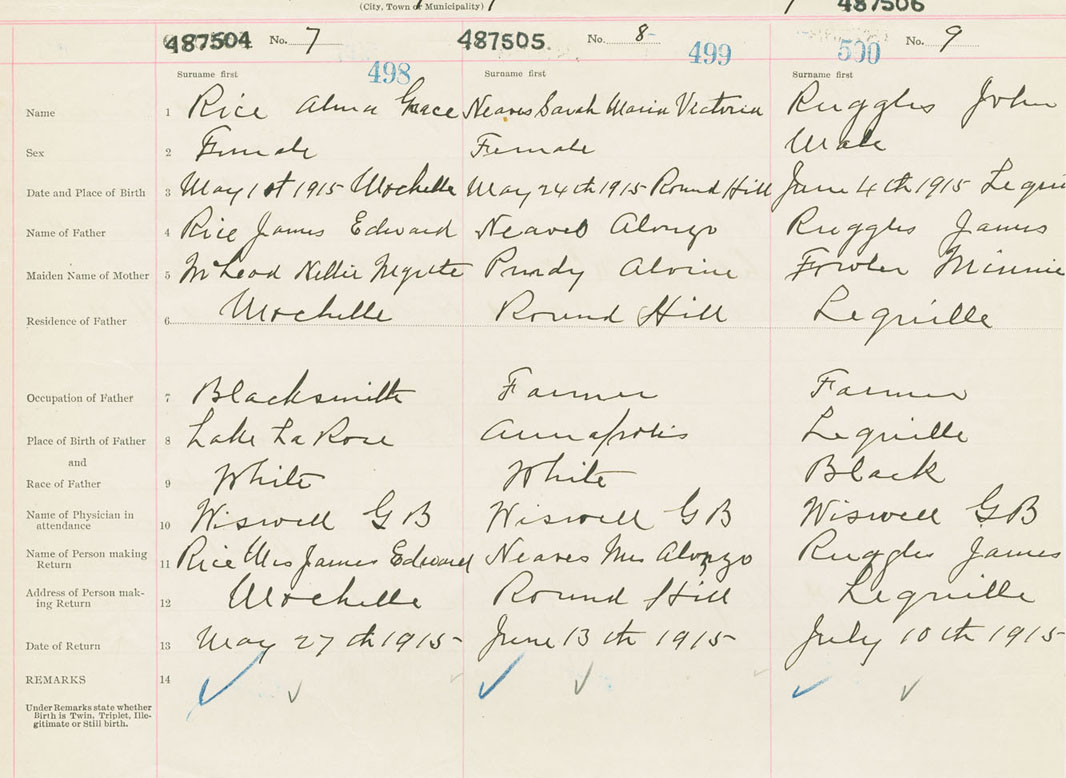 (City, Town or Municipality)
487506
487504 No. 7 487505 No. 8 No. 9
498 499 500
Surname first Surname first Surname first
Name 1 Rice Alma Grace Neaves Sarah Maria Victoria Ruggles John
Sex 2 Female Female Male
Date and Place of Birth 3 May 1st 1915 Mochelle May 24th 1915 Round Hill June 4th 1915 Lequi
Name of Father 4 Rice James Edward Neaves Alonzo Ruggles James
Maiden Name of Mother 5 McLeod Nellie Purdy Alvine Fowler Minnie
Residence of Father 6 Mochelle Round Hill Lequille
Occupation of Father 7 Blacksmith Farmer Farmer
Place of Birth of Father 8 Lake La Rose Annapolis Lequille
and
Race of Father 9 White White Black
Name of Physician in
attendance 10 Wiswell G B Wiswell G B Wiswell G B
Name of Person making
Return 11 Rice Mrs James Edward Neaves Mrs Alonzo Ruggles James
Address of Person mak-
ing Return 12 Mochelle Round Hill Lequille
Date of Return 13 May 27th 1915 June 13th 1915 July 10th 1915
REMARKS 14
Under Remarks state whether
Birth is Twin, Triplet, Ille-
gitimate or Still birth.